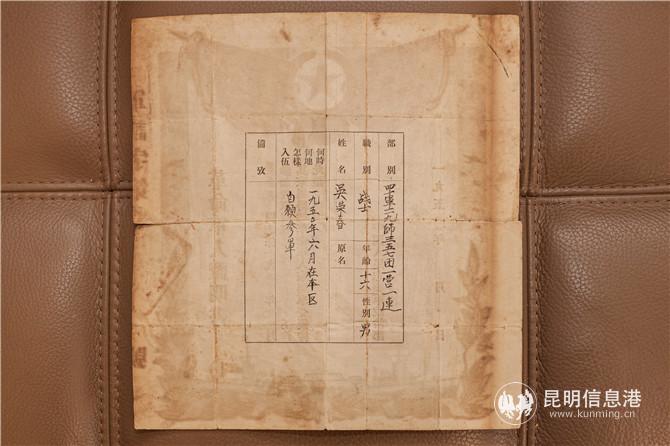 部別 軍一一九師三五七团一营一連
職別 战士 年齡 十六 性別 男
姓名 吳荣春 原名
何時
何地
怎樣
入伍
一九五〇年六月在本区
自願参軍
備攷
昆明信息港
www.kunming.cn